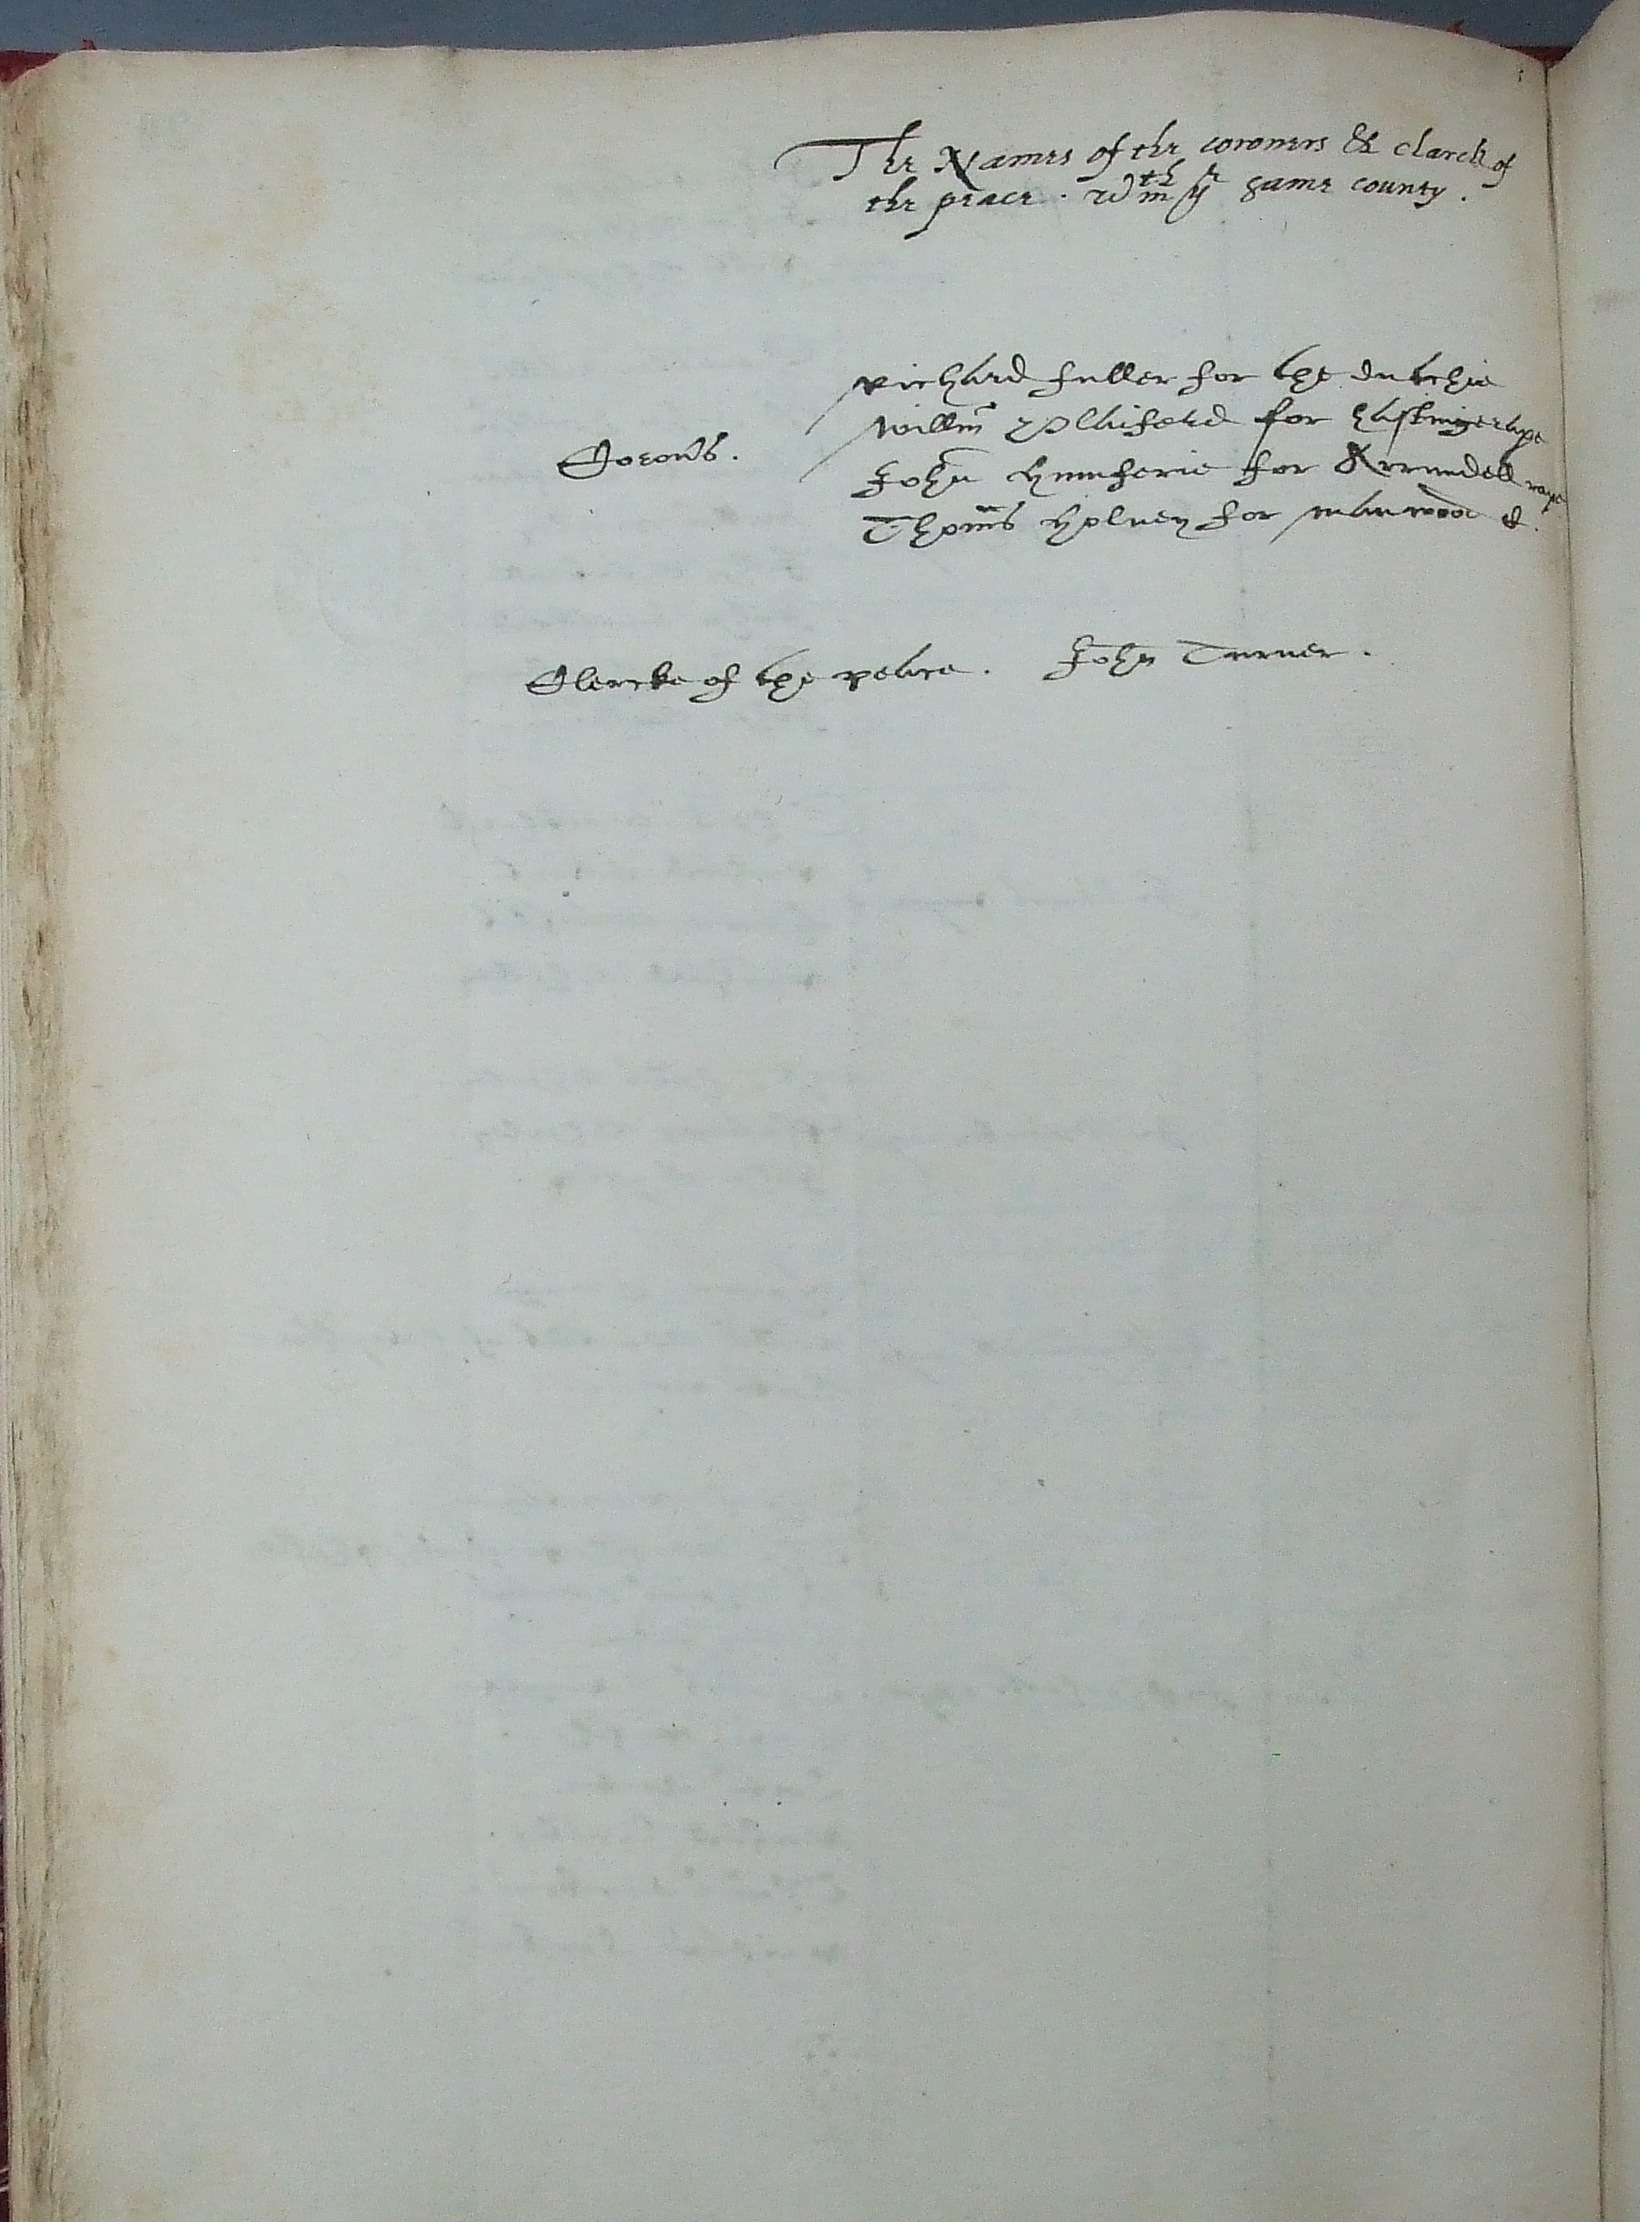 The Names of the coroners & clarck of
the peace . wthin ye same county .
Richard fuller for the dutchie
Willm Plaifard for hastinge rape
Corons.
John humferie for Arrundell rape
Thoms holney for
Clercke of the peace . John Turner .